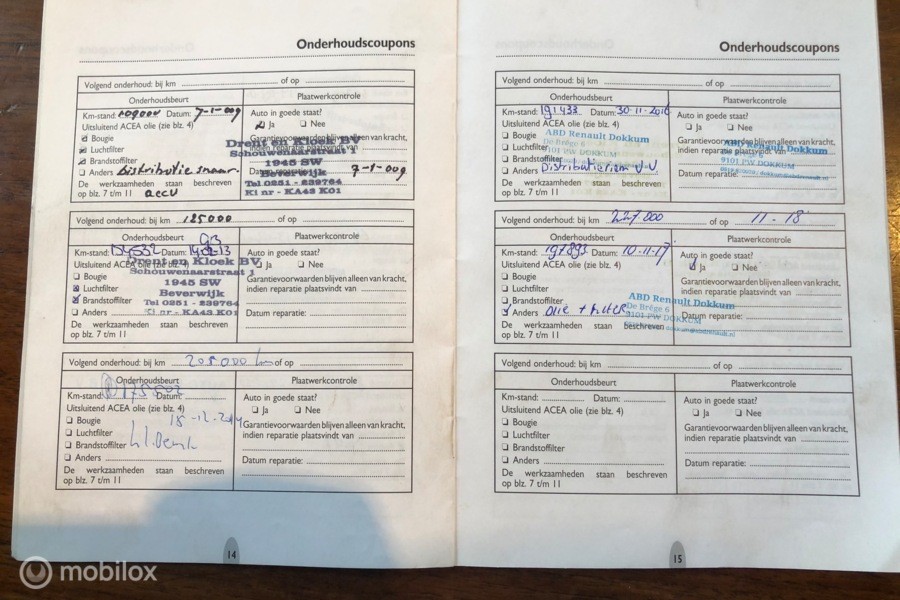 Onderhoudscoupons
Volgend onderhoud: bij km of op
Onderhoudsbeurt Plaatwerkcontrole
Km-stand: Datum: 7-1-009 Auto in goede staat?
Uitsluitend ACEA olie (zie blz. 4) Ja Nee
Bougie Garantievoorwaarden blijven alleen van kracht,
Luchtfilter indien reparatie plaatsvindt van
Brandstoffilter
Anders Distributie snaar. Datum reparatie: 7-1-009
De werkzaamheden staan beschreven
op blz. 7 t/m 11 accu
Drent en Kloek BV
Schouwenaarstraat 1
1945 SW
Beverwijk
Tel 0251 - 239764
KI nr - KA43 K01
Volgend onderhoud: bij km 185000 of op
Onderhoudsbeurt Plaatwerkcontrole
Km-stand: Datum: Auto in goede staat?
Uitsluitend ACEA olie (zie blz. 4) Ja Nee
Bougie Garantievoorwaarden blijven alleen van kracht,
Luchtfilter indien reparatie plaatsvindt van
Brandstoffilter
Anders Datum reparatie:
De werkzaamheden staan beschreven
op blz. 7 t/m 11
Drent en Kloek BV
Schouwenaarstraat 1
1945 SW
Beverwijk
Tel 0251 - 239764
KI nr - KA43 K01
Volgend onderhoud: bij km 205.000 km of op
Onderhoudsbeurt Plaatwerkcontrole
Km-stand: Datum: Auto in goede staat?
Uitsluitend ACEA olie (zie blz. 4) Ja Nee
Bougie 18-12-2014 Garantievoorwaarden blijven alleen van kracht,
Luchtfilter indien reparatie plaatsvindt van
Brandstoffilter
Anders Datum reparatie:
De werkzaamheden staan beschreven
op blz. 7 t/m 11
14
Onderhoudscoupons
Volgend onderhoud: bij km of op
Onderhoudsbeurt Plaatwerkcontrole
Km-stand: 191433 Datum: 30-11-2016 Auto in goede staat?
Uitsluitend ACEA olie (zie blz. 4) Ja Nee
Bougie Garantievoorwaarden blijven alleen van kracht,
Luchtfilter indien reparatie plaatsvindt van
Brandstoffilter
Anders Distributieriem V.V. Datum reparatie:
De werkzaamheden staan beschreven
op blz. 7 t/m 11
ABD Renault Dokkum
De Brêge 6
9101 PW DOKKUM
ABD Renault Dokkum
De Brêge 6
9101 PW DOKKUM
Volgend onderhoud: bij km 227000 of op 11-18
Onderhoudsbeurt Plaatwerkcontrole
Km-stand: 197893 Datum: 10-11-17 Auto in goede staat?
Uitsluitend ACEA olie (zie blz. 4) Ja Nee
Bougie Garantievoorwaarden blijven alleen van kracht,
Luchtfilter indien reparatie plaatsvindt van
Brandstoffilter
Anders Olie + filter Datum reparatie:
De werkzaamheden staan beschreven
op blz. 7 t/m 11
ABD Renault Dokkum
De Brêge 6
9101 PW DOKKUM
Volgend onderhoud: bij km of op
Onderhoudsbeurt Plaatwerkcontrole
Km-stand: Datum: Auto in goede staat?
Uitsluitend ACEA olie (zie blz. 4) Ja Nee
Bougie Garantievoorwaarden blijven alleen van kracht,
Luchtfilter indien reparatie plaatsvindt van
Brandstoffilter
Anders Datum reparatie:
De werkzaamheden staan beschreven
op blz. 7 t/m 11
15
mobilox